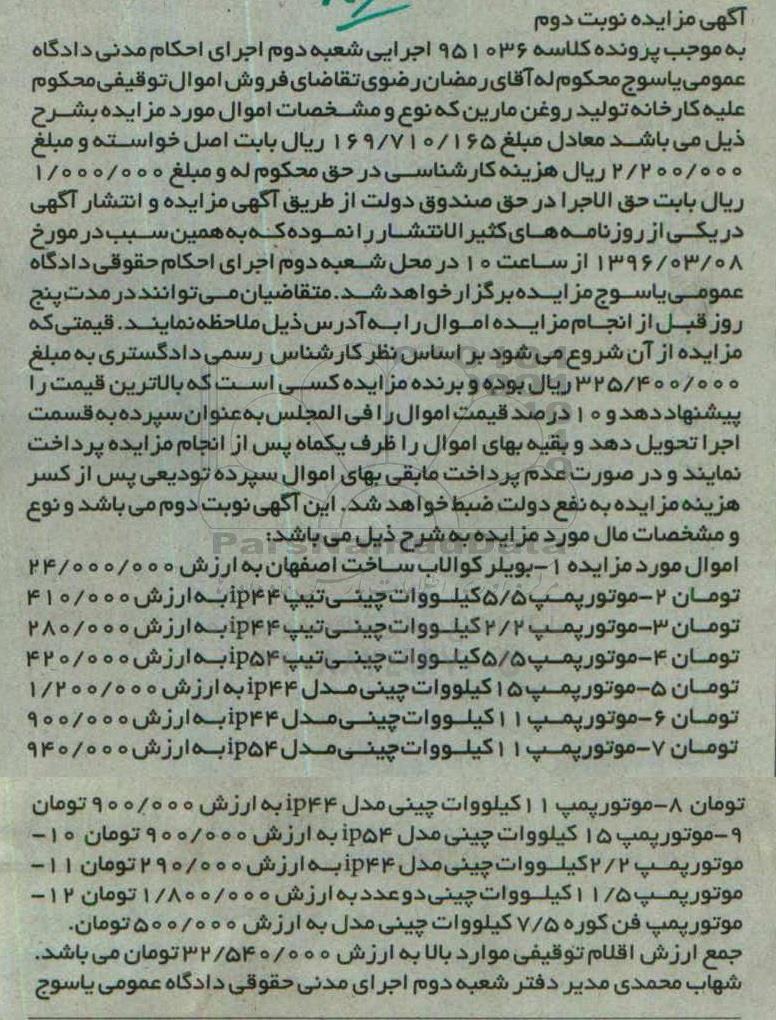 آگهی مزایده نوبت دوم
به موجب پرونده کلاسه ۹۵۱۰۳۶ اجرایی شعبه دوم اجرای احکام مدنی دادگاه
عمومی یاسوج محکوم له آقای رمضان رضوی تقاضای فروش اموال توقیفی محکوم
علیه کارخانه تولید روغن مارین که نوع و مشخصات اموال مورد مزایده بشرح
ذیل می باشد معادل مبلغ ۱۶۹/۷۱۰/۱۶۵ ریال بابت اصل خواسته و مبلغ
۲/۲۰۰/۰۰۰ ریال هزینه کارشناسی در حق محکوم له و مبلغ ۱/۰۰۰/۰۰۰
ریال بابت حق الاجرا در حق صندوق دولت از طریق آگهی مزایده و انتشار آگهی
در یکی از روزنامه های کثیرالانتشار را نموده که به همین سبب در مورخ
۱۳۹۶/۰۳/۰۸ از ساعت ۱۰ در محل شعبه دوم اجرای احکام حقوقی دادگاه
عمومی یاسوج مزایده برگزار خواهد شد. متقاضیان می توانند در مدت پنج
روز قبل از انجام مزایده اموال را به آدرس ذیل ملاحظه نمایند. قیمتی که
مزایده از آن شروع می شود بر اساس نظر کارشناس رسمی دادگستری به مبلغ
۳۲۵/۴۰۰/۰۰۰ ریال بوده و برنده مزایده کسی است که بالاترین قیمت را
پیشنهاد دهد و ۱۰ درصد قیمت اموال را فی المجلس به عنوان سپرده به قسمت
اجرا تحویل دهد و بقیه بهای اموال را ظرف یکماه پس از انجام مزایده پرداخت
نمایند و در صورت عدم پرداخت مابقی بهای اموال سپرده تودیعی پس از کسر
هزینه مزایده به نفع دولت ضبط خواهد شد. این آگهی نوبت دوم می باشد و نوع
و مشخصات مال مورد مزایده به شرح ذیل می باشد:
اموال مورد مزایده ۱-بویلر کوالاب ساخت اصفهان به ارزش ۲۴/۰۰۰/۰۰۰
تومان ۲-موتورپمپ ۵/۵ کیلووات چینی تیپ ip۴۴ به ارزش ۴۱۰/۰۰۰
تومان ۳-موتورپمپ ۲/۲ کیلووات چینی تیپ ip۴۴ به ارزش ۲۸۰/۰۰۰
تومان ۴-موتورپمپ ۵/۵ کیلووات چینی تیپ ip۵۴ به ارزش ۴۲۰/۰۰۰
تومان ۵-موتورپمپ ۱۵ کیلووات چینی مدل ip۴۴ به ارزش ۱/۲۰۰/۰۰۰
تومان ۶-موتورپمپ ۱۱ کیلووات چینی مدل ip۴۴ به ارزش ۹۰۰/۰۰۰
تومان ۷-موتورپمپ ۱۱ کیلووات چینی مدل ip۵۴ به ارزش ۹۴۰/۰۰۰
تومان ۸-موتورپمپ ۱۱ کیلووات چینی مدل ip۴۴ به ارزش ۹۰۰/۰۰۰ تومان
۹-موتورپمپ ۱۵ کیلووات چینی مدل ip۵۴ به ارزش ۹۰۰/۰۰۰ تومان ۱۰-
موتورپمپ ۲/۲ کیلووات چینی مدل ip۴۴ به ارزش ۲۹۰/۰۰۰ تومان ۱۱-
موتورپمپ ۱۱/۵ کیلووات چینی دو عدد به ارزش ۱/۸۰۰/۰۰۰ تومان ۱۲-
موتورپمپ فن کوره ۷/۵ کیلووات چینی مدل به ارزش ۵۰۰/۰۰۰ تومان.
جمع ارزش اقلام توقیفی موارد بالا به ارزش ۳۲/۵۴۰/۰۰۰ تومان می باشد.
شهاب محمدی مدیر دفتر شعبه دوم اجرای مدنی حقوقی دادگاه عمومی یاسوج